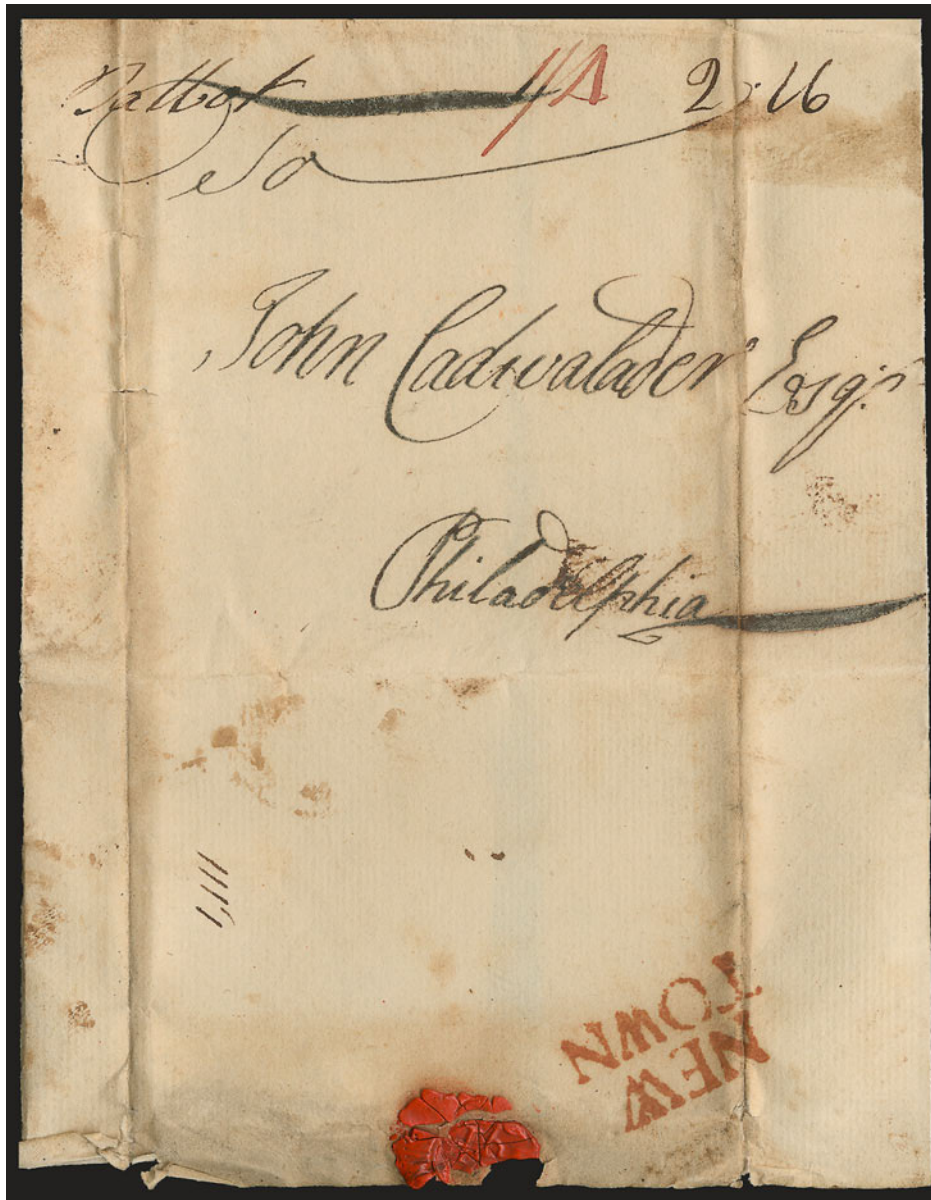 Talbot 2:16
To
John Cadwalader Esqr.
Philadelphia
NEW
TOWN